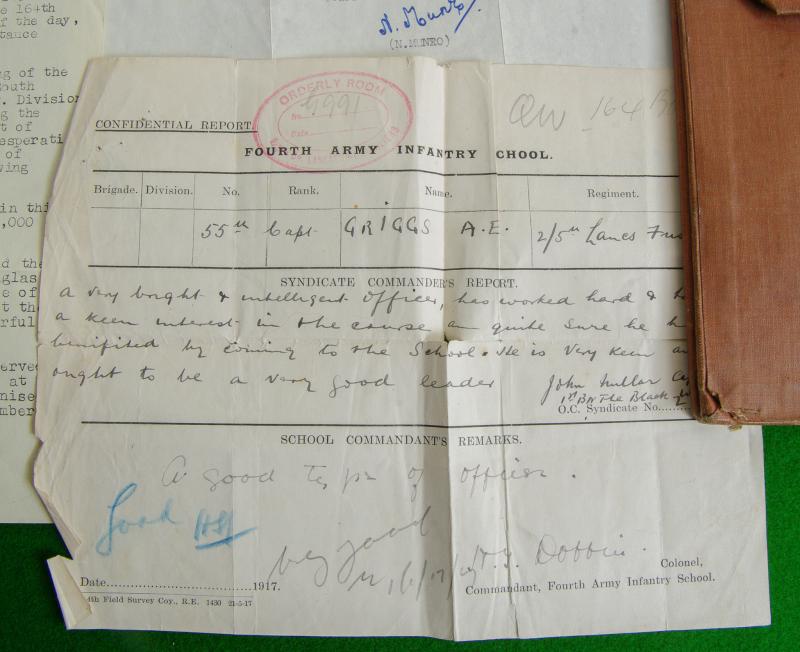 164th
f the day,
tance
ng of the
outh
. Division
g the
t of
esperati
of
ving
in thi
,000
d the
glas
e of
t th
rful
erve
at
nise
mber
N. Munro
(N. MUNRO)
ORDERLY ROOM
No. 9991
Date
CONFIDENTIAL REPORT.
164 B
FOURTH ARMY INFANTRY CHOOL.
Brigade. Division. No. Rank. Name. Regiment.
55th Capt. GRIGGS A.E. 2/5th Lancs Fus
SYNDICATE COMMANDER'S REPORT.
A very bright & intelligent officer, has worked hard &
a keen interest in the course am quite sure he h
benifited by coming to the School. He is very keen an
ought to be a very good leader
John
1st Bn The Black
O.C. Syndicate No.......
SCHOOL COMMANDANT'S REMARKS.
A good type of officer.
Good
very good
Dobbin.
Colonel,
Date..............................1917.
Commandant, Fourth Army Infantry School.
4th Field Survey Coy., R.E. 1430 21-5-17